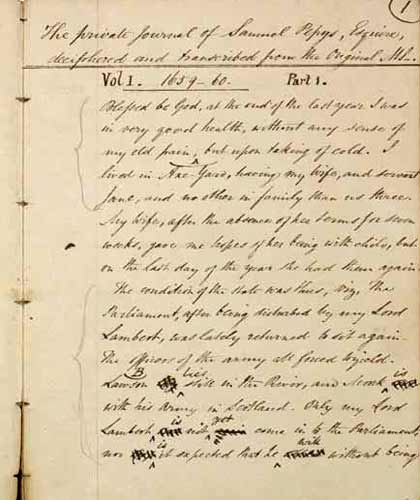 1
The private Journal of Samuel Pepys, Esquire,
deciphered and transcribed from the Original, MS.
Vol 1. 1659-60. Part 1.
Blessed be God, at the end of the last year I was
in very good health, without any sense of
my old pain, but upon taking of cold. I
lived in Axe-Yard, having my wife, and servant
Jane, and no other in family than us three.
My wife, after the absence of her terms for seven
weeks, gave me hopes of her being with child, but
on the last day of the year she had them again.
The condition of the State was thus, viz. the
Parliament, after being disturbed by my Lord
Lambert, was lately returned to sit again.
The officers of the army all forced to yield.
B lies is
Lawson still in the River, and Monk
with his army in Scotland. Only my Lord
is yet
Lambert not come in to the Parliament,
is will
nor it expected that he without being